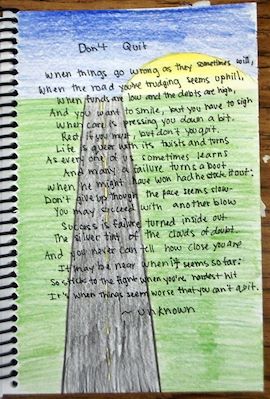 Don't Quit
When things go wrong as they sometimes will,
When the road you're trudging seems uphill,
When funds are low and the debts are high,
And you want to smile, but you have to sigh
When care is pressing you down a bit.
Rest if you must, but don't you quit.
Life is queer with its twists and turns
As every one of us sometimes learns
And many a failure turns about
when he might have won had he stuck it out:
Don't give up though the pace seems slow-
You may succeed with another blow
Success is failure turned inside out
The silver tint of the clouds of doubt.
And you never can tell how close you are
It may be near when it seems so far:
So stick to the fight when you're hardest hit
It's when things seem worse that you can't quit.
~ unknown